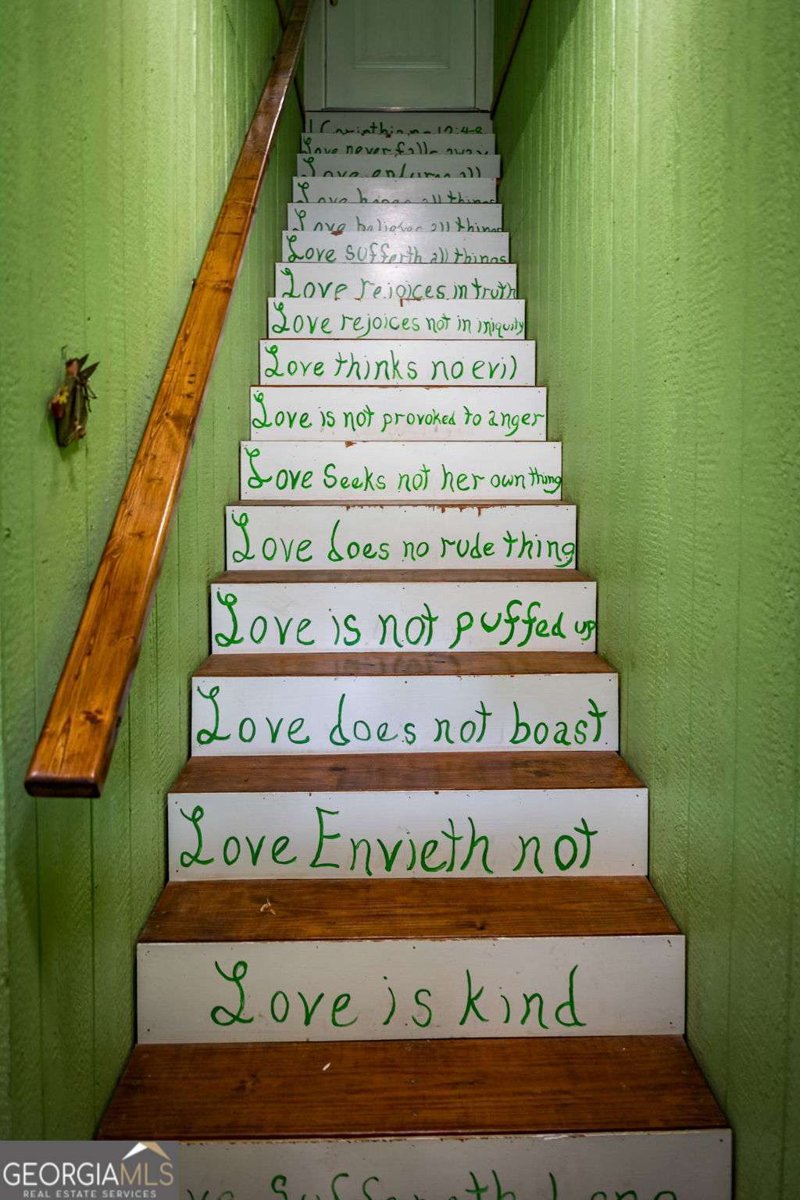 1 Corinthians 13:4-8
Love never falls away
Love endures all
Love hopes all things
Love believes all things
Love sufferth all things
Love rejoices in truth
Love rejoices not in iniquity
Love thinks no evil
Love is not provoked to anger
Love Seeks not her own thing
Love does no rude thing
Love is not puffed up
Love does not boast
Love Envieth not
Love is kind
Love Suffereth Long
GEORGIAMLS
REAL ESTATE SERVICES